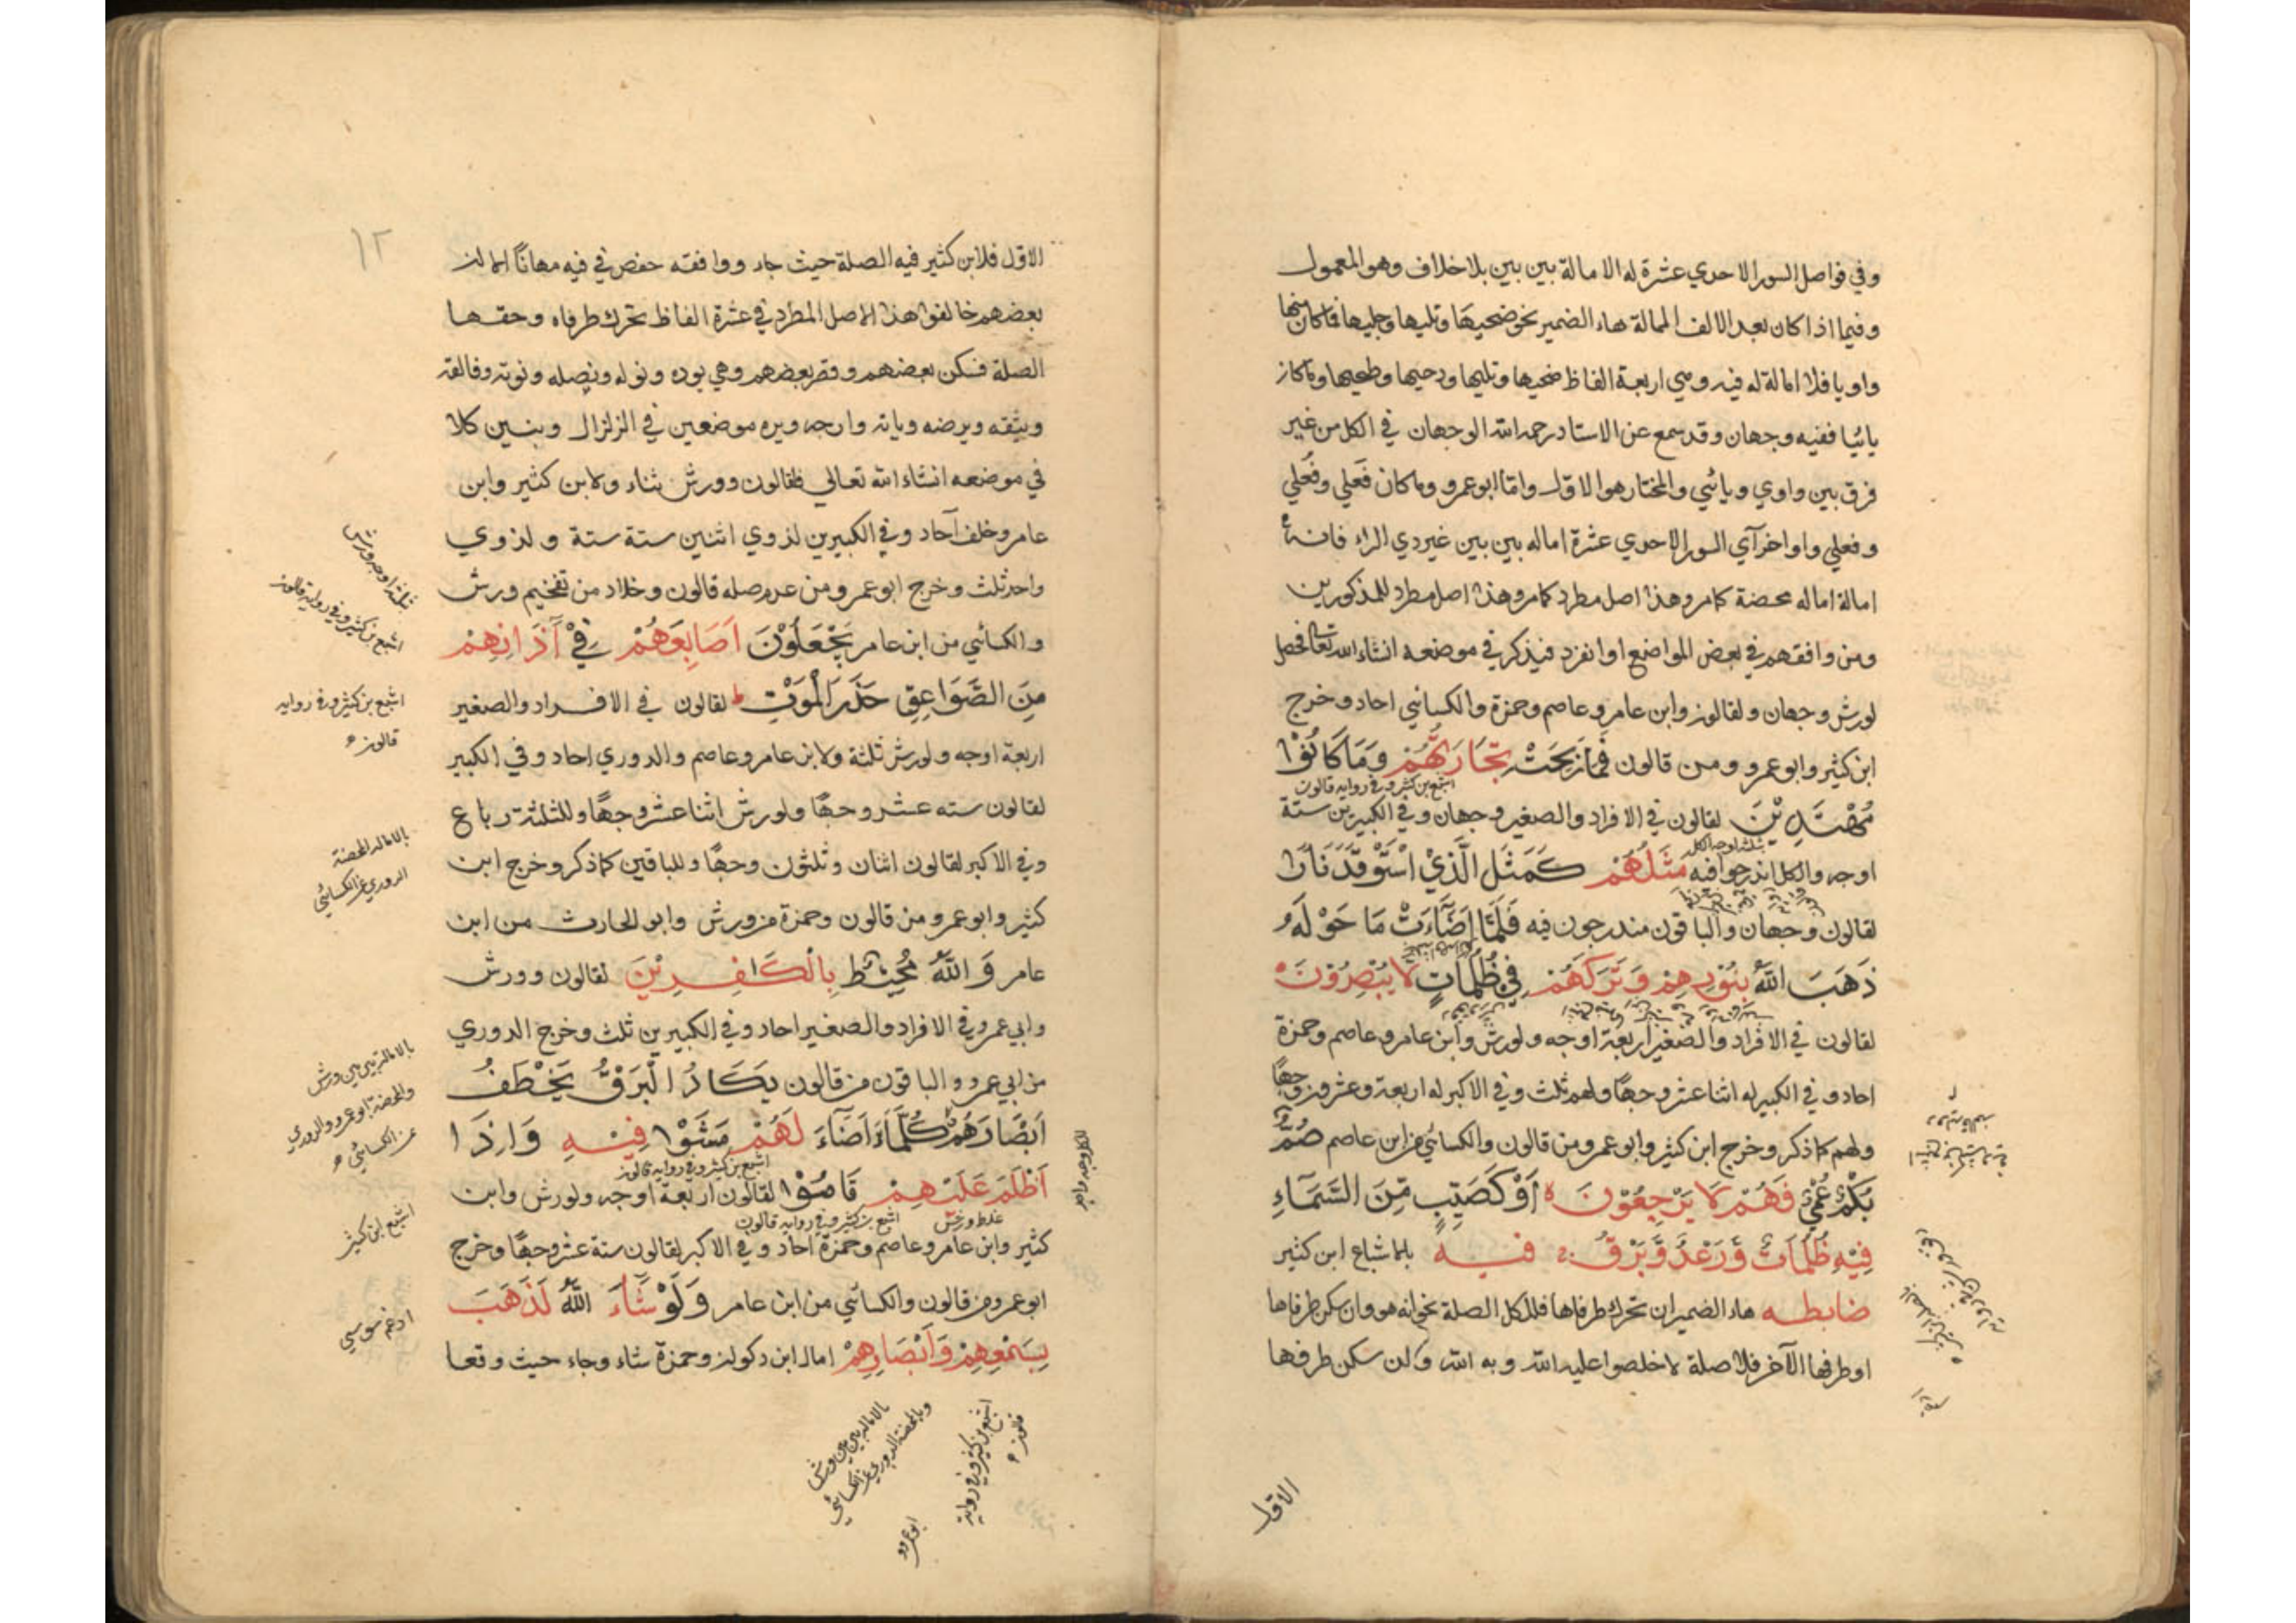 وفي فواصل السور الاحدي عشرة له الامالة بين بين بلاخلاف وهو المعمول
وفيما اذا كان بعد الالف الممالة هاء الضمير نحو ضحيها وتليها وجليها فما كان منها
واويا فلا امالة له فيه وهي اربعة الفاظ ضحيها وتليها ودحيها وطحيها وما كان
يائيا ففيه وجهان وقد سمع عن الاستاد رحمه الله الوجهان في الكل من غير
فرق بين واوي ويائي والمختار هو الاول واما ابوعمرو وما كان فَعلي وفُعلي
وفعلي واواخر آي السور الاحدي عشرة اماله بين بين غير ذي الراء فانه
امالة اماله محضة كما مر وهذا اصل مطرد كما مر وهذا اصل مطرد للمذكورين
ومن وافقهم في بعض المواضع او انفرد فيذكر في موضعه انشاء الله تعالى فحصل
لورش وجهان ولقالون وابن عامر وعاصم وحمزة والكسائي احاد وخرج
ابن كثير وابوعمرو ومن قالون فَمَا رَبِحَتْ تِجَارَتُهُمْ وَمَا كَانُوْا
اشبع بن كثير وفي رواية قالون
مُهْتَدِيْنَ لقالون في الافراد والصغير وجهان وفي الكبيرين ستة
اوجه والكل اندرجوا فيه مَثَلُهُمْ كَمَثَلِ الَّذِيْ اسْتَوْقَدَ نَارًا
لقالون وجهان والباقون مندرجون فيه فَلَمَّا اَضَآءَتْ مَا حَوْلَهُ
ذَهَبَ اللّٰهُ بِنُوْرِهِمْ وَتَرَكَهُمْ فِيْ ظُلُمَاتٍ لَا يُبْصِرُوْنَ
لقالون في الافراد والصغير اربعة اوجه ولورش وابن عامر وعاصم وحمزة
احاد وفي الكبير له اثنا عشر وجهًا ولهم ثلث وفي الاكبر له اربعة وعشرون وجهًا
ولهم كما ذكر وخرج ابن كثير وابوعمرو من قالون والكسائي من ابن عاصم صُمٌّ
بُكْمٌ عُمْيٌ فَهُمْ لَا يَرْجِعُوْنَ ه اَوْ كَصَيِّبٍ مِّنَ السَّمَآءِ
فِيْهِ ظُلُمَاتٌ وَّرَعْدٌ وَّبَرْقٌ فيه باشباع ابن كثير
ضابطه هاء الضمير ان تحرك طرفاها فللكل الصلة نحو انه هو وان سكن طرفاها
او طرفها الآخر فلا صلة لاخلصوا عليه الله وبه الله وان سكن طرفها
الاول
١٢
الاول فلابن كثير فيه الصلة حيث جاء ووافقه حفص في فيه مهانًا
بعضهم خالفوا هذا الاصل المطرد في عشرة الفاظ تحرك طرفاه وحقها
الصلة فسكن بعضهم وقصر بعضهم وهي يوده ونوله ونصله ونوته وفالقه
ويتقه ويرضه وياته وارجه ويره موضعين في الزلزال وبنسين كلا
في موضعه انشاء الله تعالي فلقالون وورش ثناء ولابن كثير وابن
عامر وخلف آحاد وفي الكبيرين لذوي اثنين ستة ستة ولذوي
واحد ثلث وخرج ابوعمرو ومن عدم صله قالون وخلاد من تفخيم ورش
والكسائي من ابن عامر يَجْعَلُوْنَ اَصَابِعَهُمْ فِيْ آذَانِهِمْ
مِنَ الصَّوَاعِقِ حَذَرَ الْمَوْتِ ط لقالون في الافراد والصغير
اربعة اوجه ولورش ثلثة ولابن عامر وعاصم والدوري احاد وفي الكبير
لقالون سته عشر وجهًا ولورش اثنا عشر وجهًا وللثلثة رباع
وفي الاكبر لقالون اثنان وثلثون وجهًا وللباقين كما ذكر وخرج ابن
كثير وابوعمرو من قالون وحمزة من ورش وابو الحارث من ابن
عامر وَاللّٰهُ مُحِيْطٌ بِالْكَافِرِيْنَ لقالون وورش
وابي عمرو في الافراد والصغير احاد وفي الكبيرين ثلث وخرج الدوري
من ابي عمرو والباقون من قالون يَكَادُ الْبَرْقُ يَخْطَفُ
اَبْصَارَهُمْ كُلَّمَا اَضَآءَ لَهُمْ مَشَوْا فِيْهِ وَاِذَا
اشبع بن كثير وفي رواية قالون
اَظْلَمَ عَلَيْهِمْ قَامُوْا لقالون اربعة اوجه ولورش وابن
غلظ ورش
اشبع بن كثير وفي رواية قالون
كثير وابن عامر وعاصم وحمزة احاد وفي الاكبر لقالون ستة عشر وجهًا وخرج
ابوعمرو من قالون والكسائي من ابن عامر وَلَوْ شَآءَ اللّٰهُ لَذَهَبَ
بِسَمْعِهِمْ وَاَبْصَارِهِمْ امال ابن ذكوان وحمزة شاء وجاء حيث وقعا
ثلثة اوجه ورش
اشبع بن كثير وفي رواية قالون
اشبع بن كثير وفي رواية
قالون
بالاماله المحضة
الدوري عن الكسائي
بالامالة بين بين ورش
والمحضة ابوعمرو والدوري
عن الكسائي
اشبع ابن كثير
ادغم سوسي
بالامالة بين بين ورش
وبالمحضة الدوري عن الكسائي
ابوعمرو
اشبع بن كثير وفي رواية
قالون